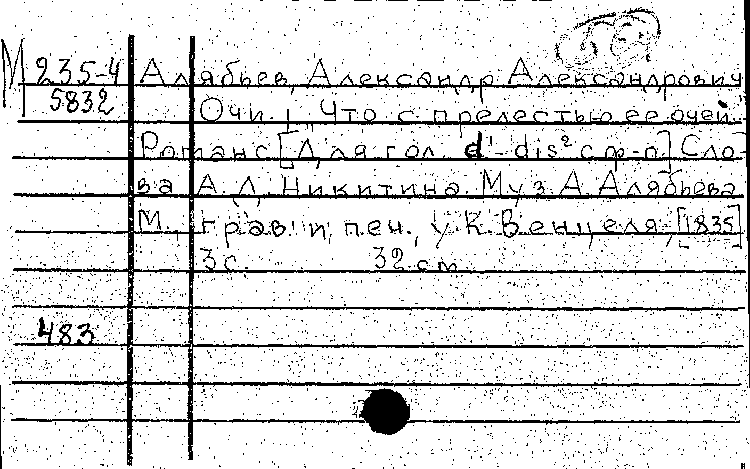 М 235-4 Алябьев, Александр Александрович
5832 Очи. „Что с прелестью ее очей"
Романс [Для гол. d¹-dis² с ф-п] Сло-
ва А. Л. Никитина. Муз. А. Алябьева
М., грав. и печ. у К. Венцеля, [1835]
3 с. 32 см.
483